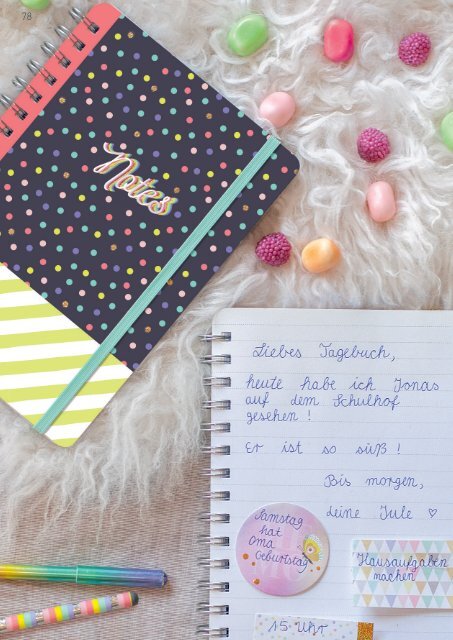 78
Notes
Liebes Tagebuch,
heute habe ich Jonas
auf dem Schulhof
gesehen !
Er ist so süß !
Bis morgen,
deine Jule ♡
Samstag
hat
Oma
Geburtstag
Hausaufgaben
machen
15 Uhr